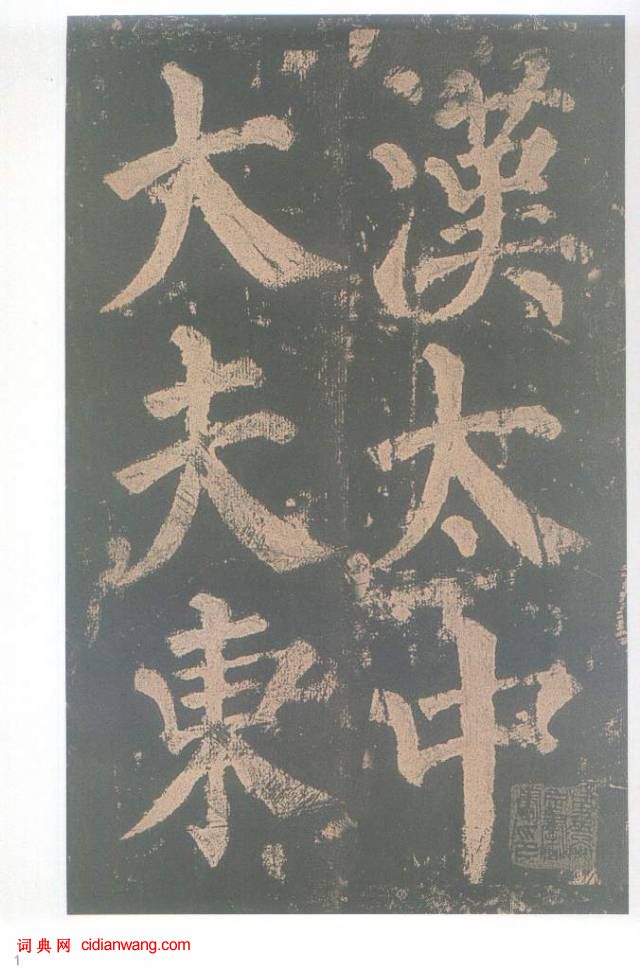 漢太中
大夫東
词典网 cidianwang.com
1